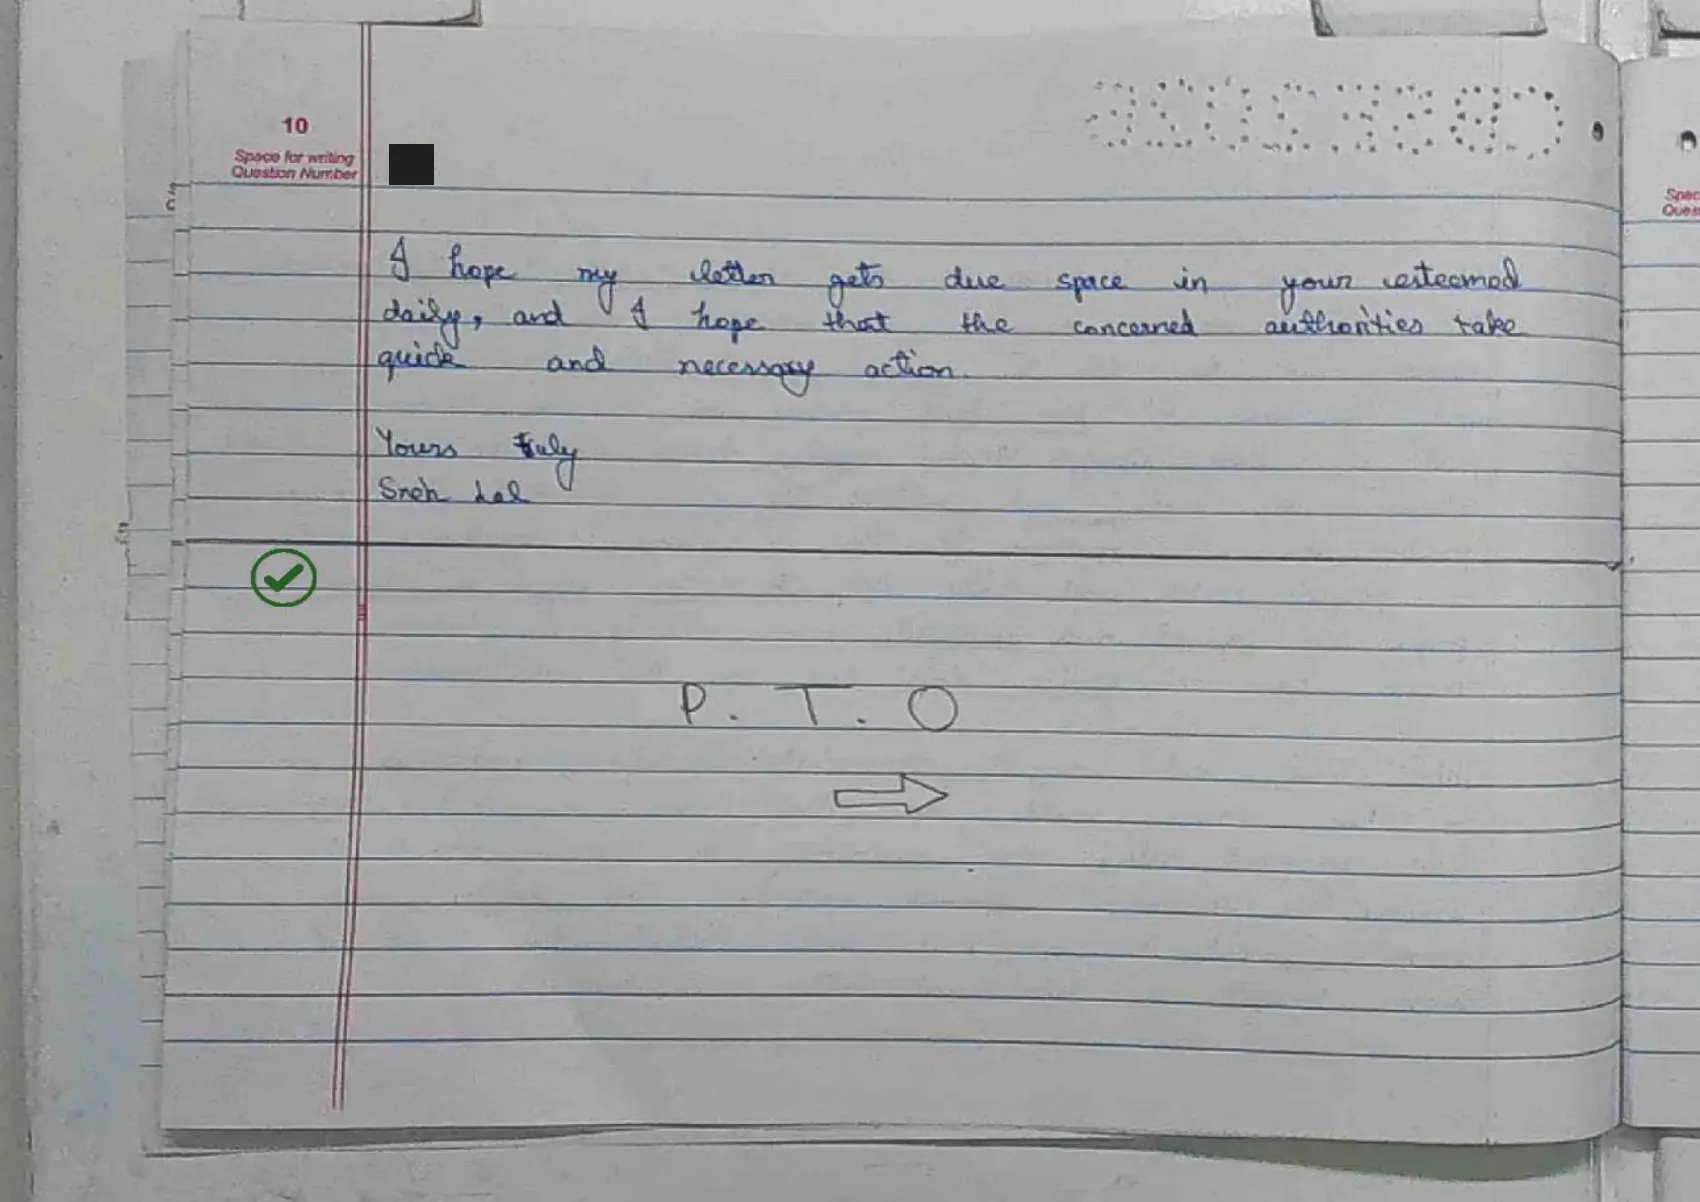 10
Space for writing
Question Number
I hope my letter gets due space in your esteemed
daily, and I hope that the concerned authorities take
quick and necessary action.
Yours truly
Sneh Lal
P. T. O